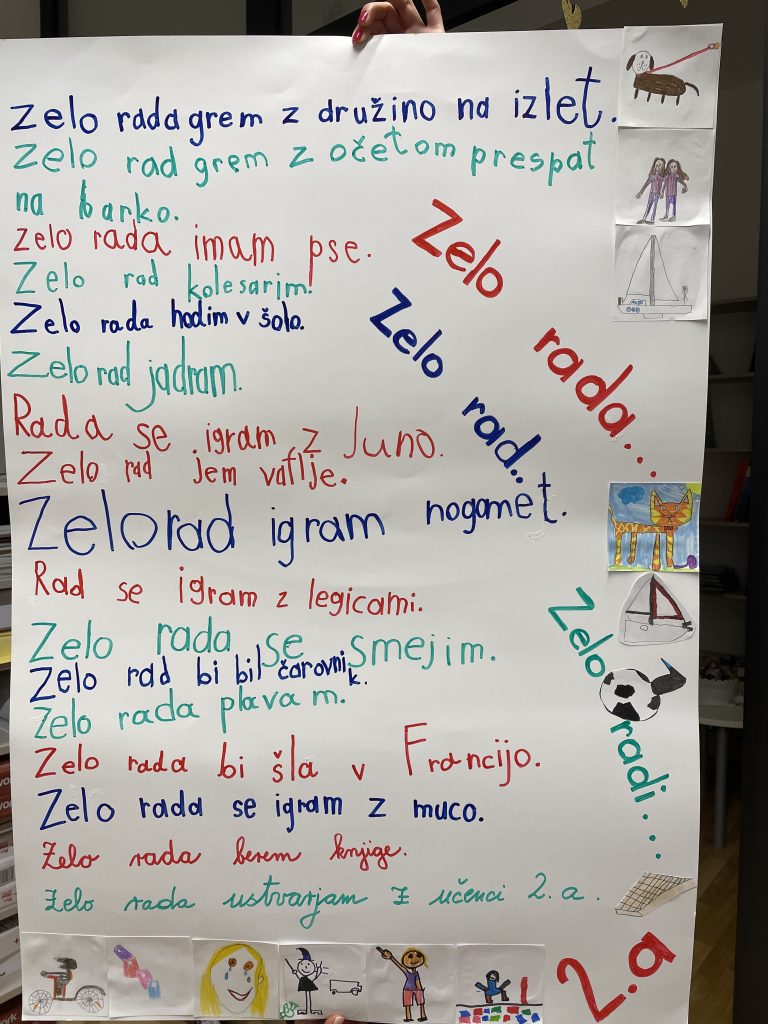 Zelo rada grem z družino na izlet.
Zelo rad grem z očetom prespat
na barko.
Zelo rada imam pse.
Zelo rad kolesarim!
Zelo rada hodim v šolo.
Zelo rad jadram.
Rada se igram z Juno.
Zelo rad jem vaflje.
Zelo rad igram nogomet.
Rad se igram z legicami.
Zelo rada se smejim.
Zelo rad bi bil čarovnik.
Zelo rada plavam.
Zelo rada bi šla v Francijo.
Zelo rada se igram z muco.
Zelo rada berem knjige.
Zelo rada ustvarjam z učenci 2. a.
Zelo rada...
Zelo rad..
Zelo radi...
2.a